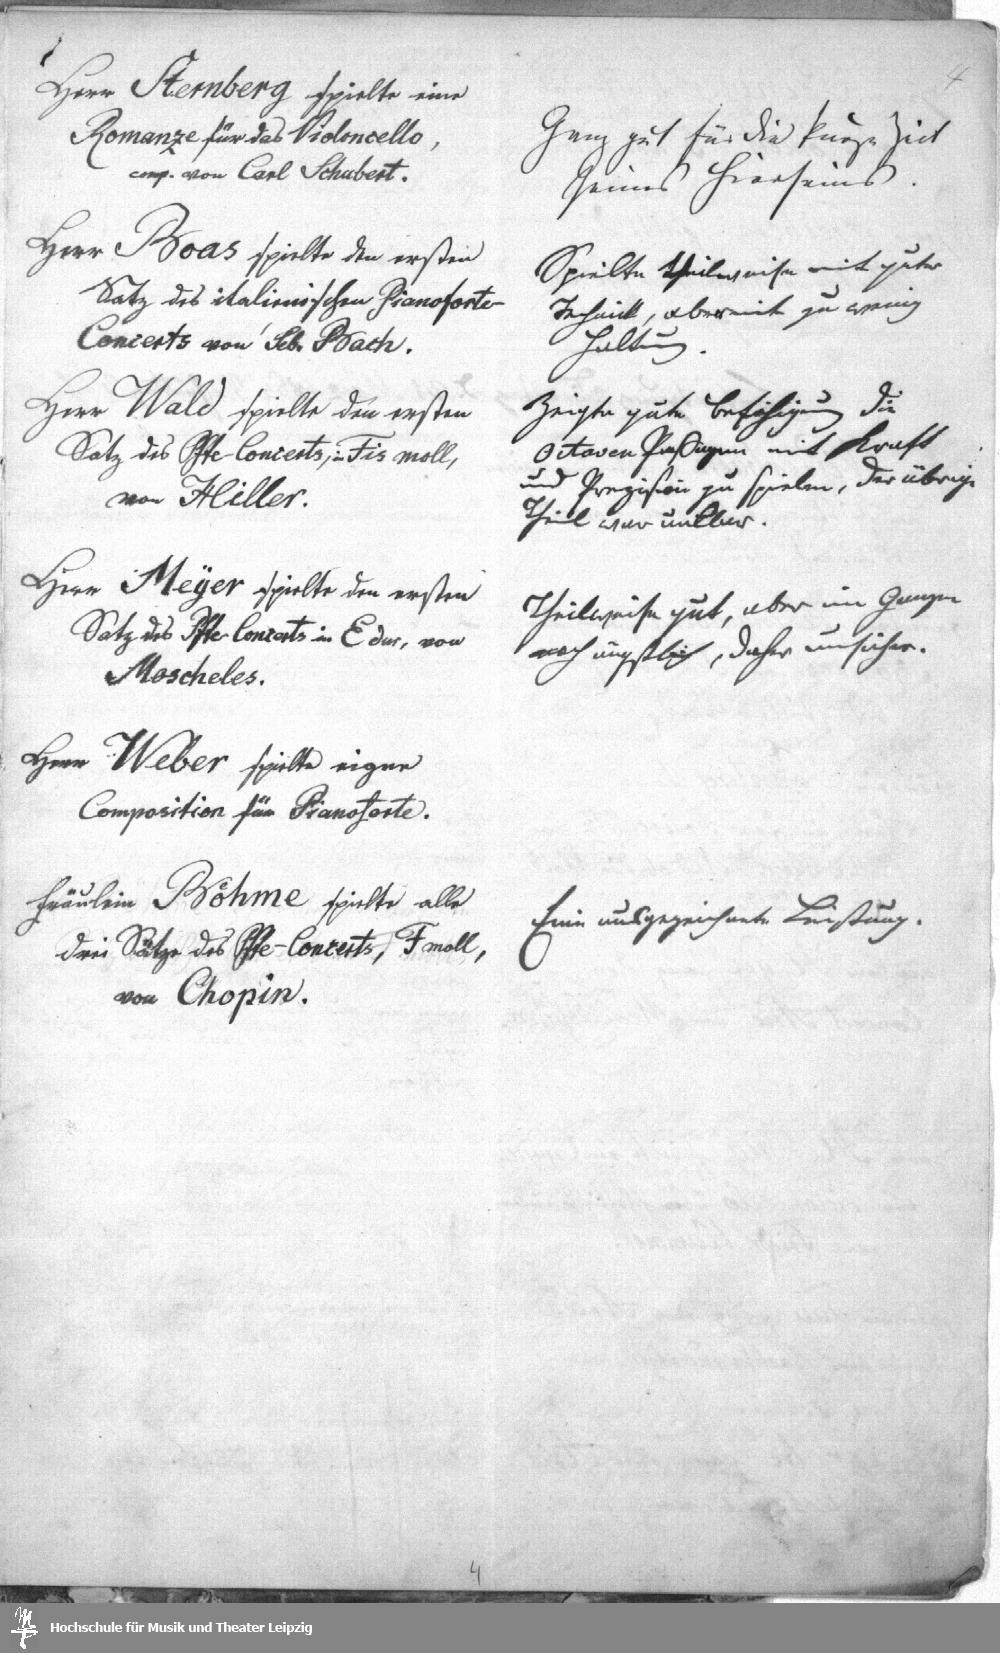 4
Herr Sternberg spielte eine
Romanze für das Violoncello,
comp. von Carl Schubert.
Ganz gut für die kurze Zeit
seines Hierseins.
Herr Boas spielte den ersten
Satz des italienischen Pianoforte-
Concerts von Seb. Bach.
Spielte theilweise mit guter
Technick, aber mit zu wenig
Haltung.
Herr Wald spielte den ersten
Satz des Pfte-Concerts, in Fis moll,
von Hiller.
Zeigte gute Befähigung die
Octaven Passagen mit Kraft
und Prezision zu spielen, der übrige
Theil war unklar.
Herr Meÿer spielte den ersten
Satz des Pfte-Concerts in E dur, von
Moscheles.
Theilweise gut, aber im Ganzen
noch ängstlich, daher unsicher.
Herr Weber spielte eigne
Composition für Pianoforte.
Fräulein Böhme spielte alle
drei Sätze des Pfte-Concerts, F moll,
von Chopin.
Eine ausgezeichnete Leistung.
4
Hochschule für Musik und Theater Leipzig